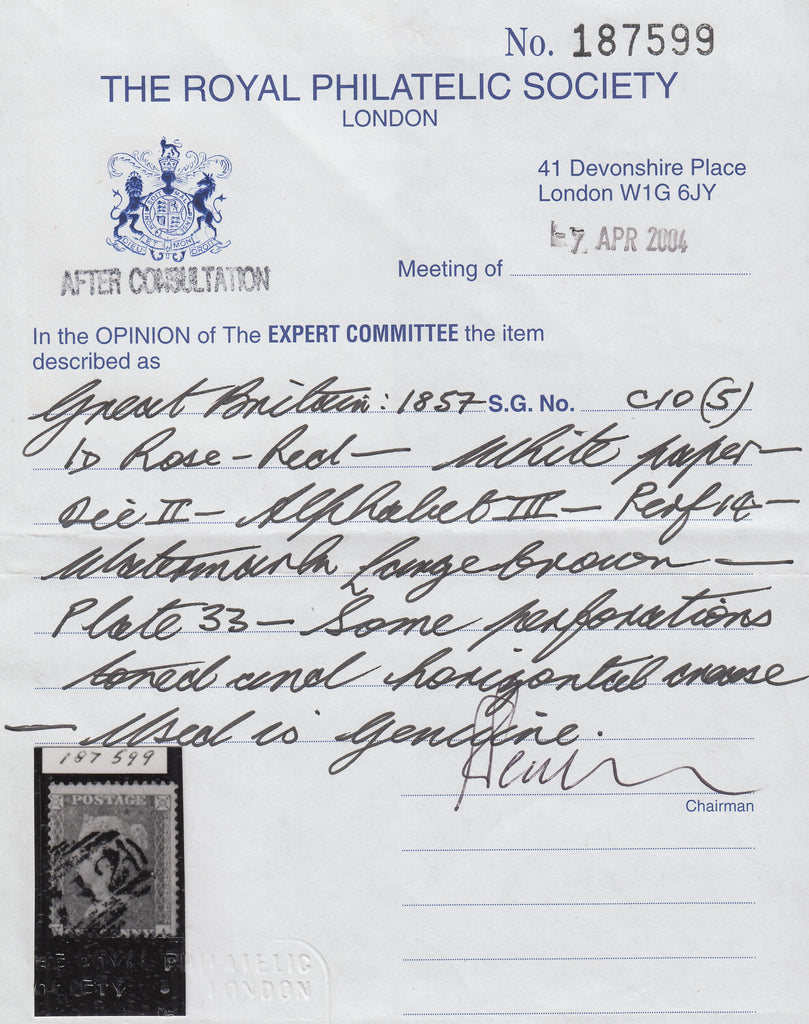 No. 187599
THE ROYAL PHILATELIC SOCIETY
LONDON
41 Devonshire Place
London W1G 6JY
AFTER CONSULTATION
Meeting of 7 APR 2004
In the OPINION of The EXPERT COMMITTEE the item
described as
Great Britain: 1857 S.G. No. C10 (5)
1D Rose-Red — White paper —
Die II — Alphabet III — Perf 14 —
Watermark Large Crown —
Plate 33 — Some perforations
toned and horizontal crease
— Used is genuine.
Chairman
187599
POSTAGE
12
THE ROYAL PHILATELIC
SOCIETY LONDON